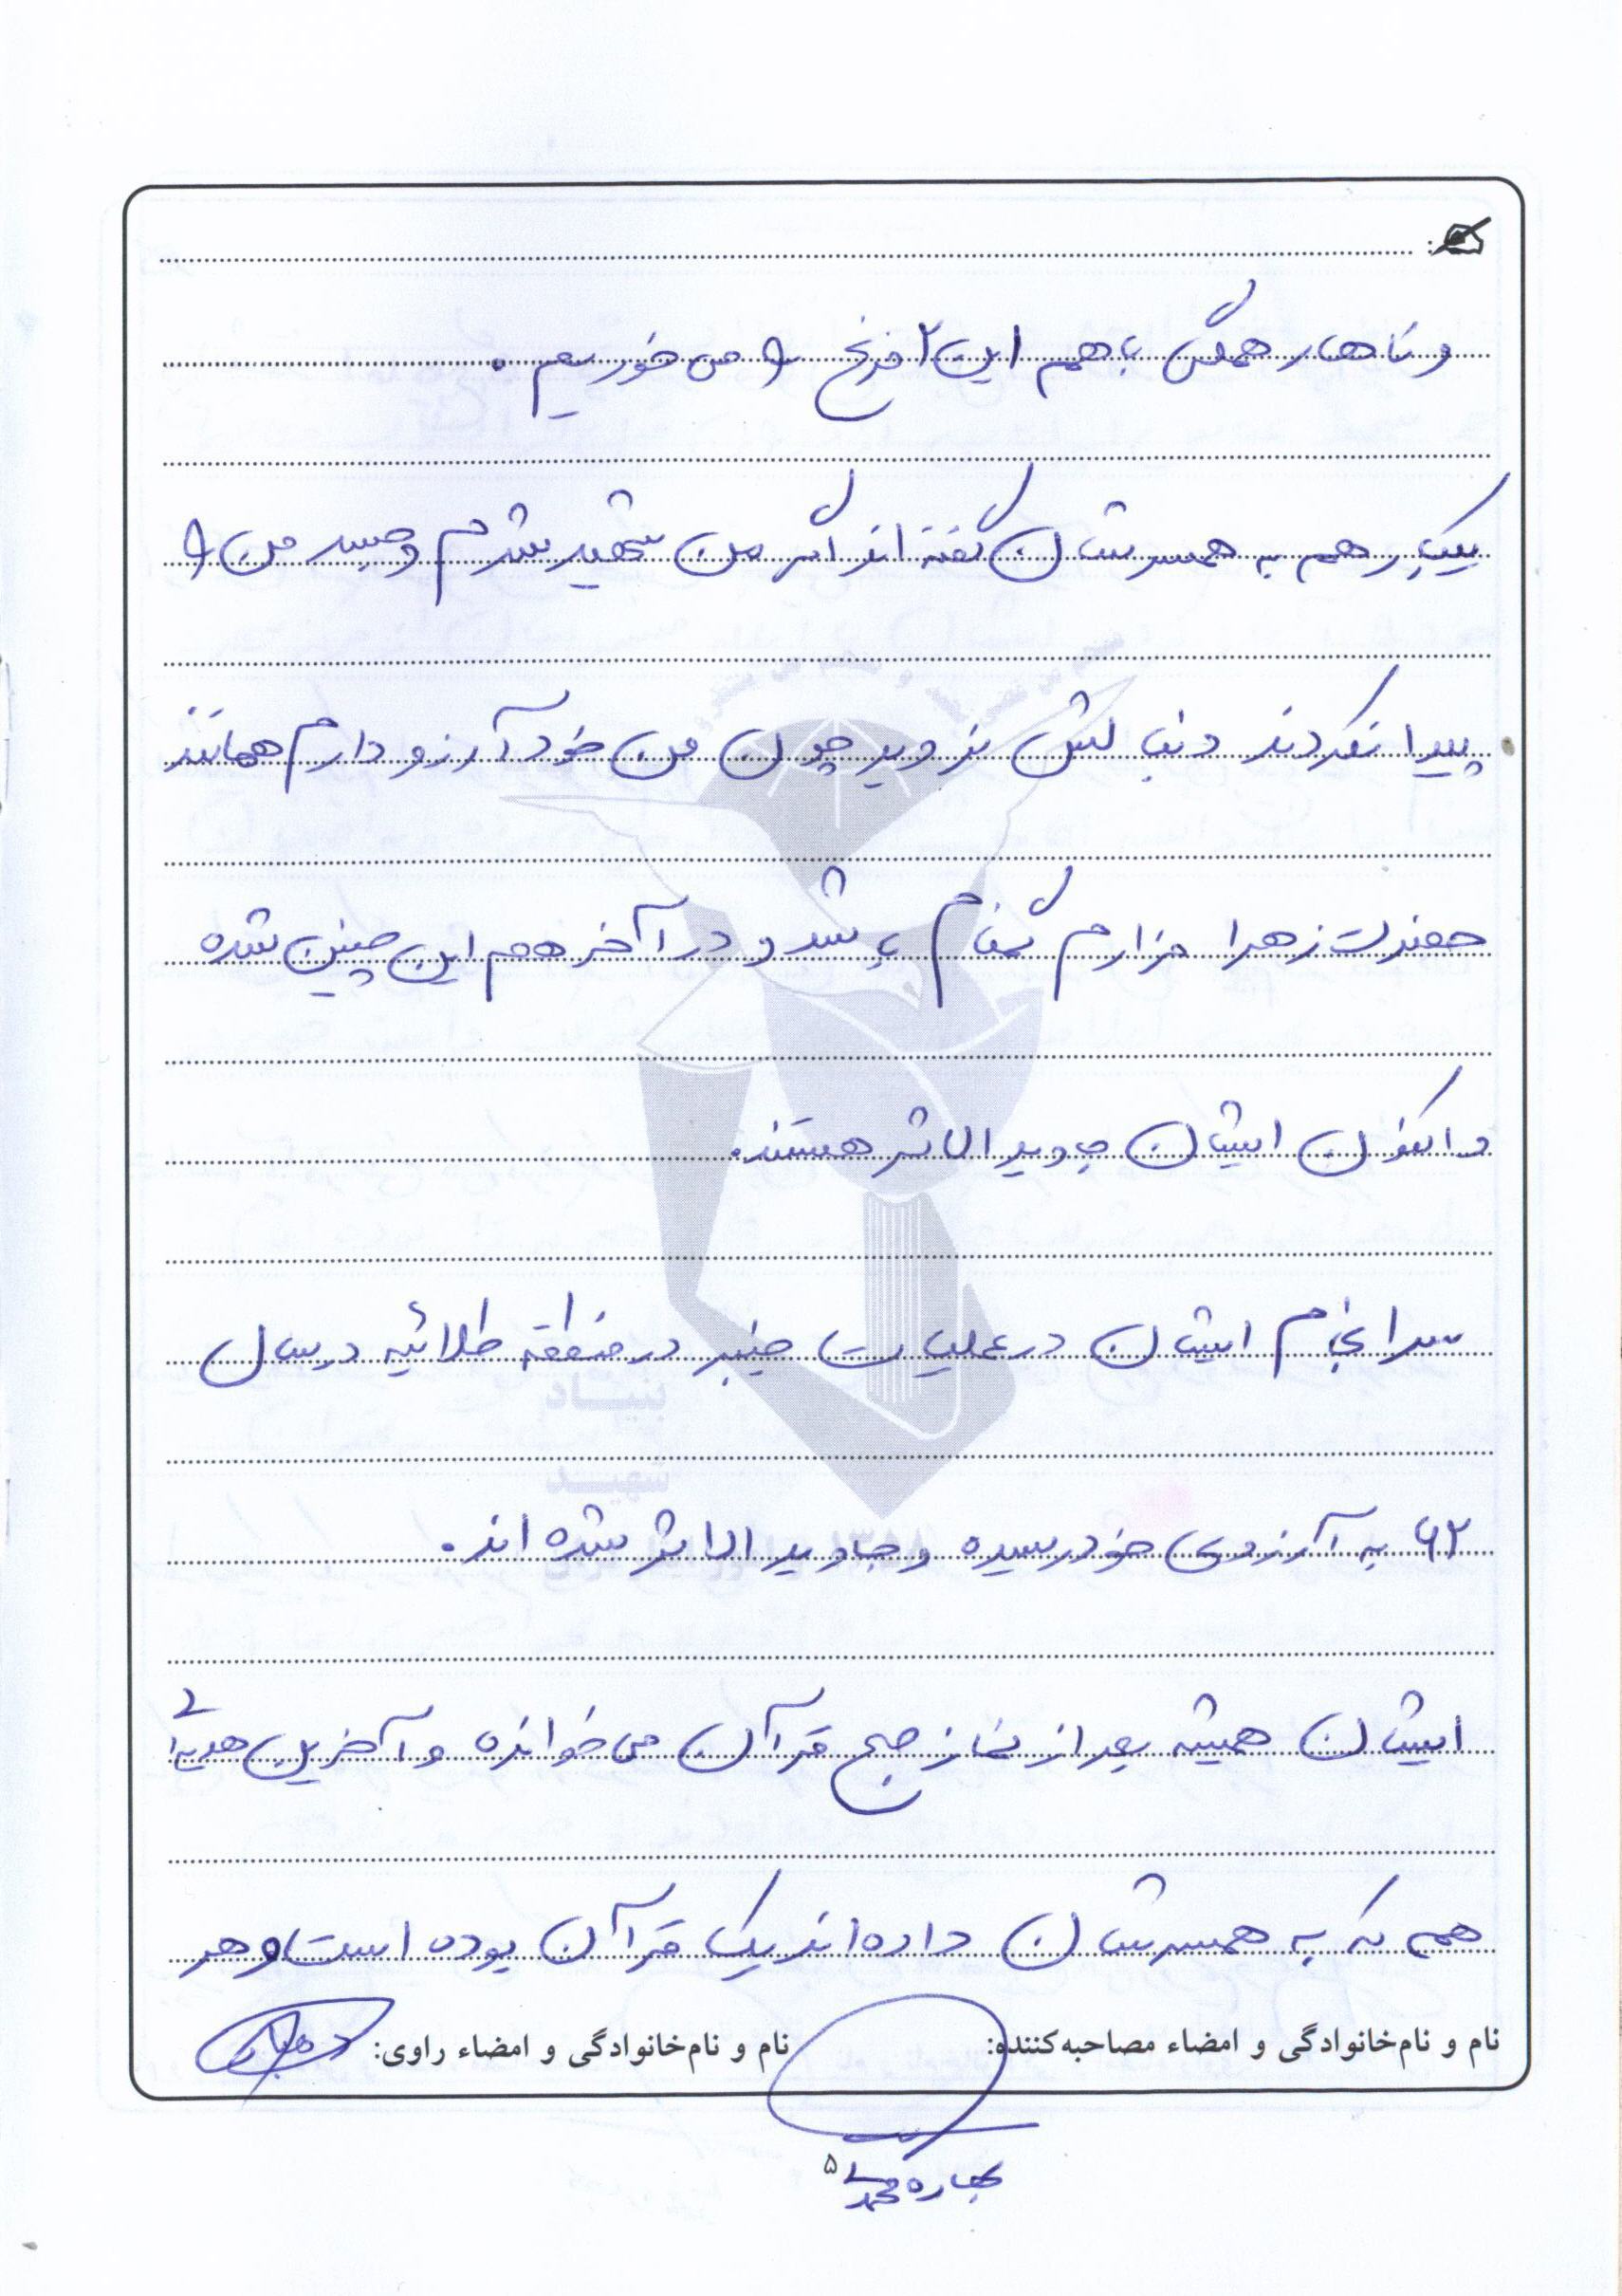 و ناهار همگی باهم این ۲ مرغ را می خوریم.
یکبار هم به همسرشان گفته اند اگر من شهید شدم و جسد من را
پیدا نکردند دنبالش نروید چون من خود آرزو دارم همانند
حضرت زهرا مزارم گمنام باشد و در آخر هم این چنین شده
و اکنون ایشان جاوید الاثر هستند.
سرانجام ایشان در عملیات خیبر در منطقه طلائیه در سال
۶۲ به آرزوی خود رسیده و جاوید الاثر شده اند.
ایشان همیشه بعد از نماز صبح قرآن می خوانده و آخرین هدیه ای
هم که به همسرشان داده اند یک قرآن بوده است و هر
نام و نام‌خانوادگی و امضاء مصاحبه‌کننده: نام و نام‌خانوادگی و امضاء راوی:
بهاره محمدی
۵
بنیاد
شهید